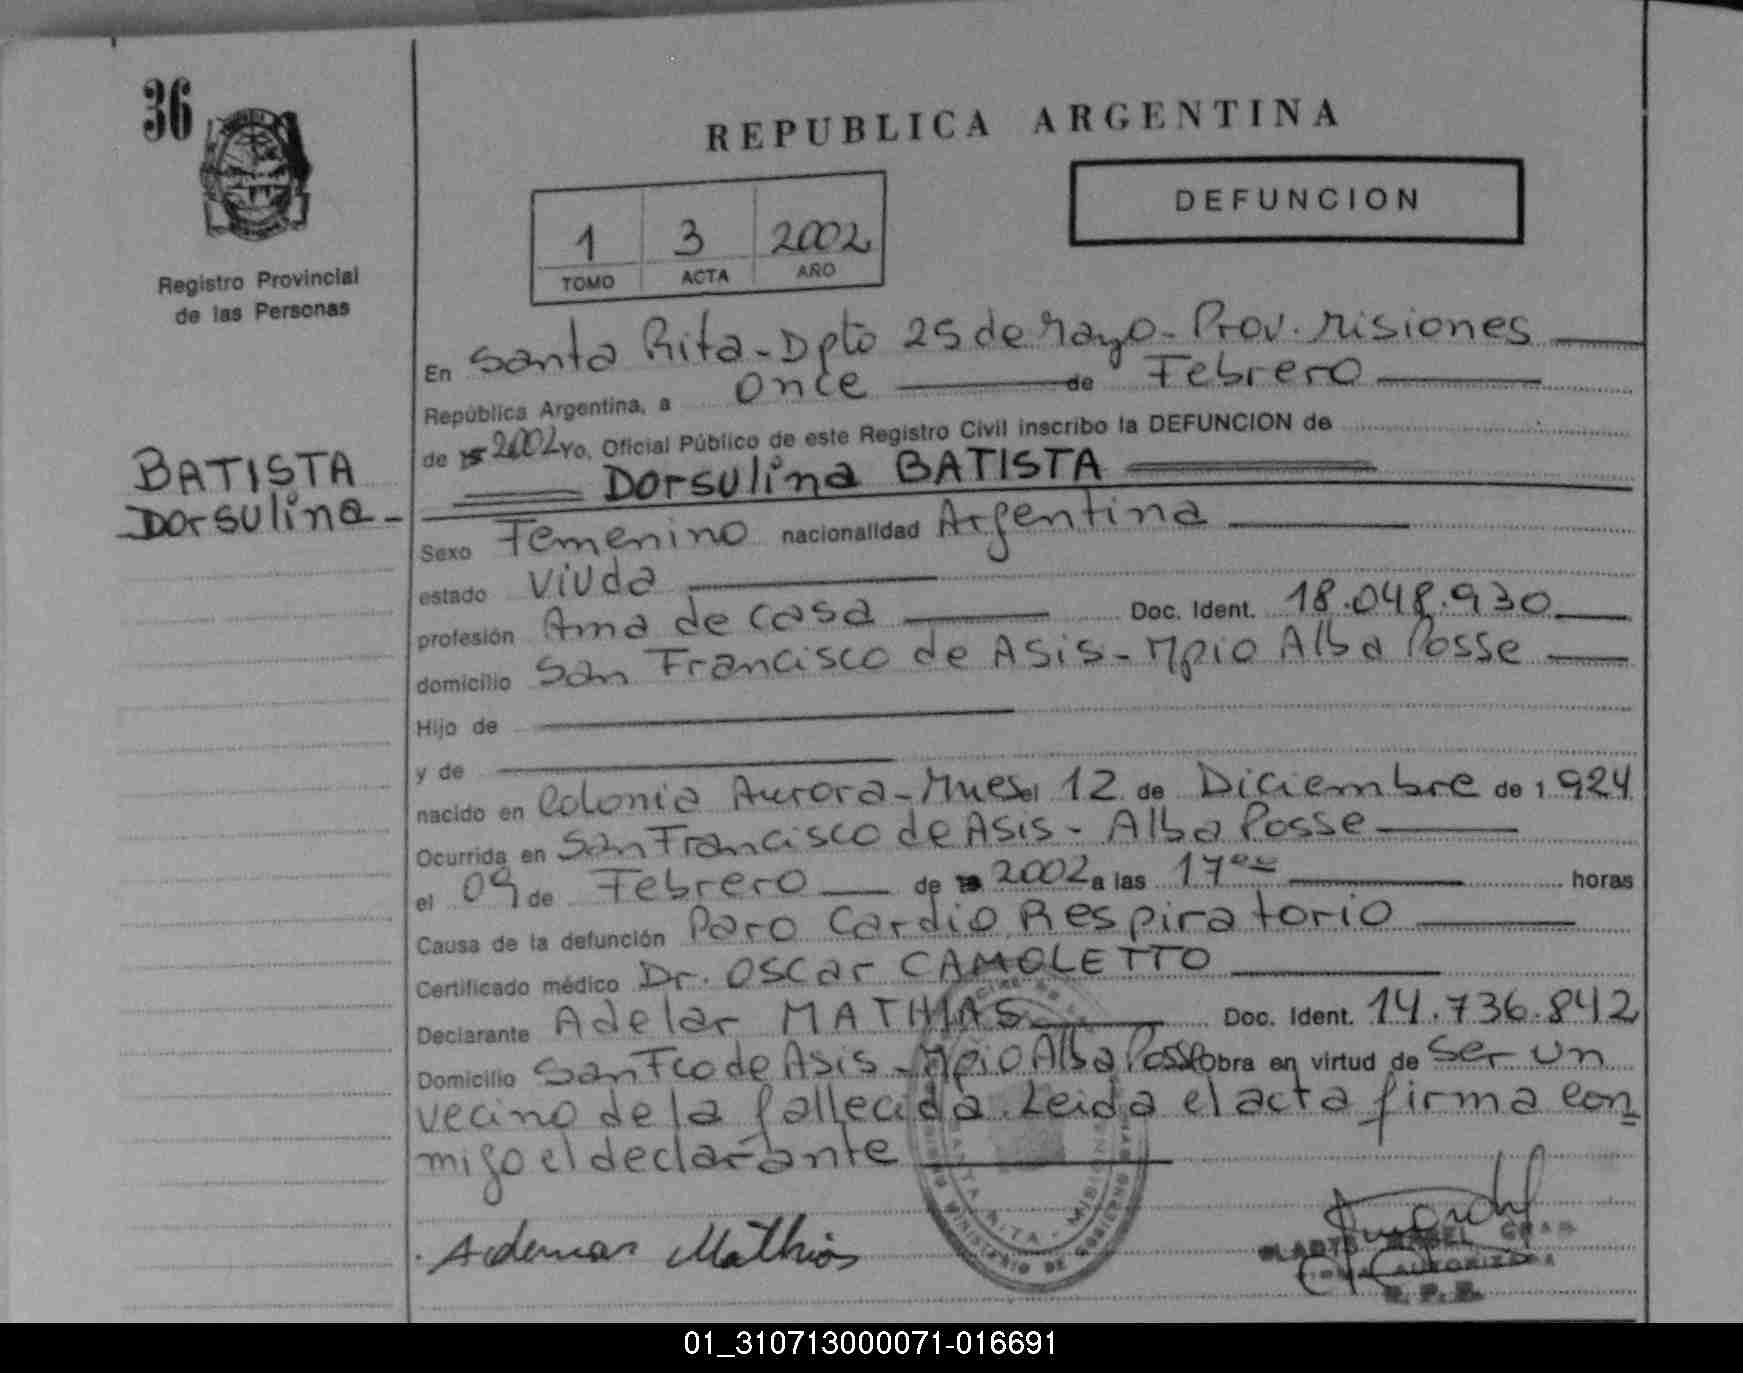 36
REPUBLICA ARGENTINA
DEFUNCION
1 3 2002
TOMO ACTA AÑO
Registro Provincial
de las Personas
En Santa Rita - Dpto 25 de Mayo - Prov. Misiones
República Argentina, a once de Febrero
de 2002 Yo, Oficial Público de este Registro Civil inscribo la DEFUNCION de
Dorsulina BATISTA
BATISTA
Dorsulina -
Sexo Femenino nacionalidad Argentina
estado viuda
profesión Ama de casa Doc. Ident. 18.048.930
domicilio San Francisco de Asis - Mpio Alba Posse
Hijo de
y de
nacido en Colonia Aurora - Mnes el 12 de Diciembre de 1.924
Ocurrida en San Francisco de Asis - Alba Posse
el 09 de Febrero de 2002 a las 17 00 horas
Causa de la defunción Paro Cardio Respiratorio
Certificado médico Dr. Oscar CAMOLETTO
Declarante Adelar MATHIAS Doc. Ident. 14.736.842
Domicilio San Fco de Asis - Mpio Alba Posse obra en virtud de ser un
vecino de la fallecida. Leida el acta firma con
migo el declarante
Ademar Mathias
SANTA RITA - MISIONES
MINISTERIO DE GOBIERNO
GLADYS MABEL
FIRMA AUTORIZADA
R. P. P.
01_310713000071-016691